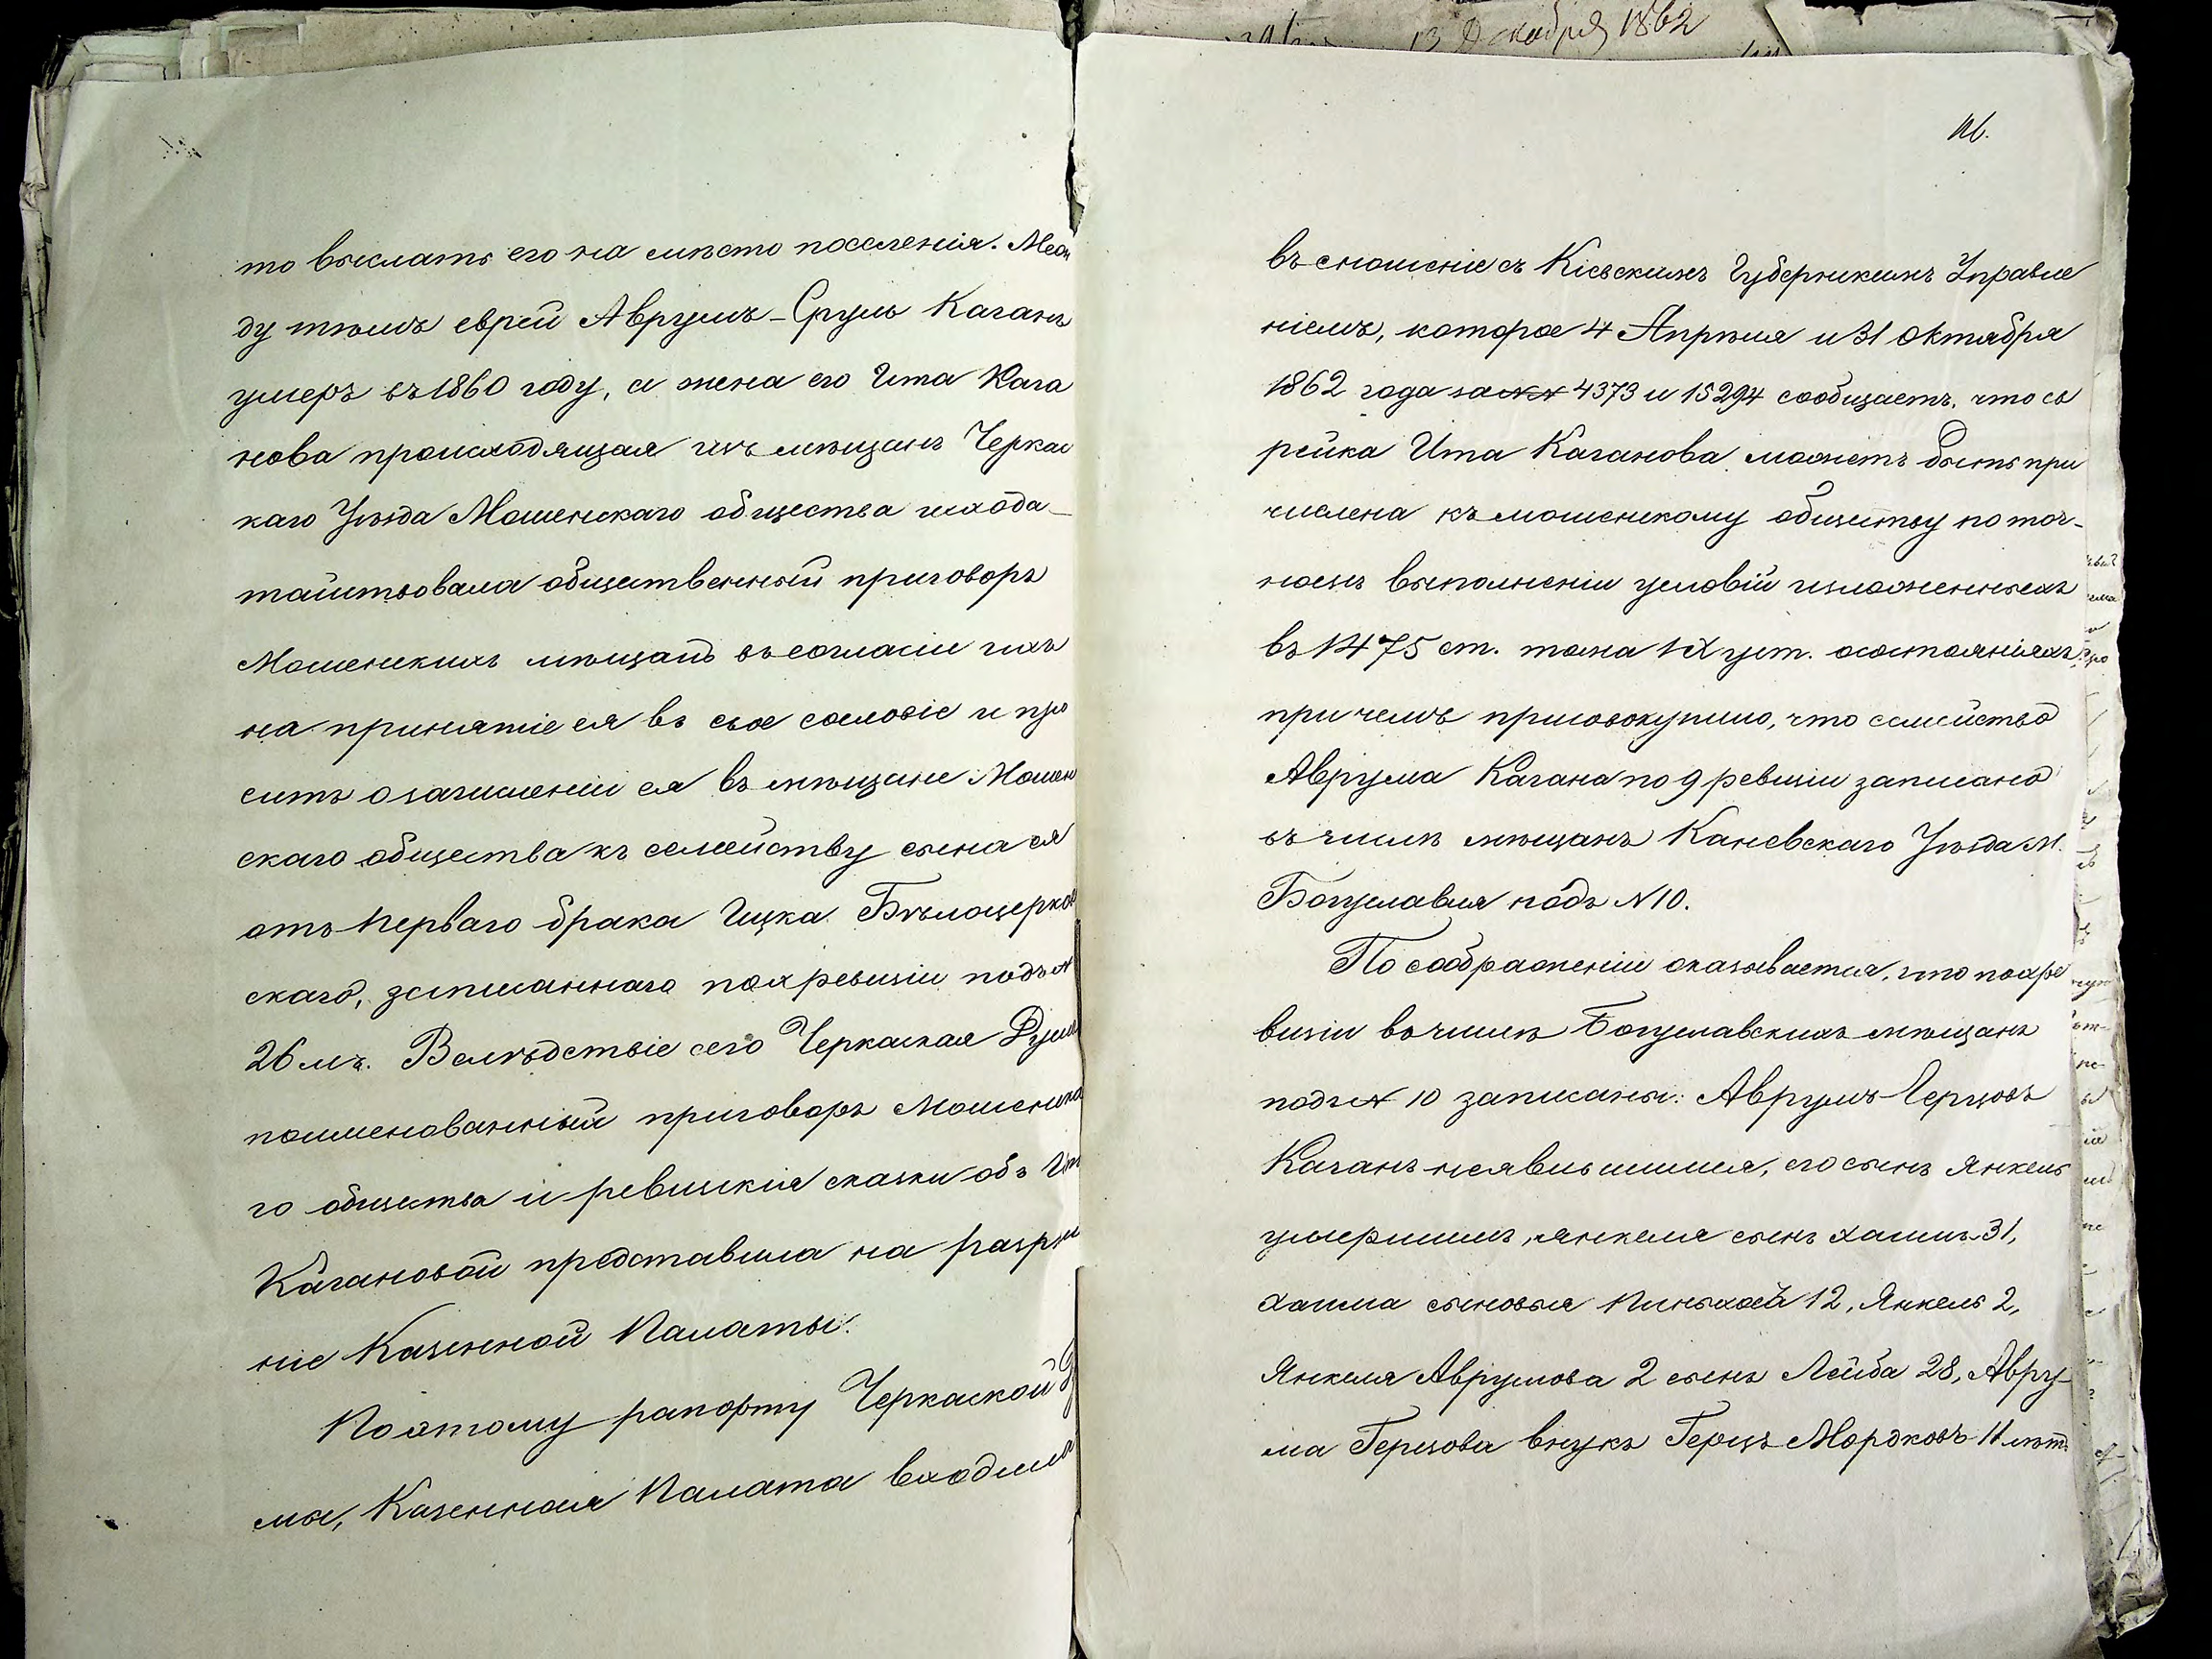 то выслать его на мѣсто поселенія. Меж
ду тѣмъ еврей Аврумъ-Сруль Каганъ
умеръ въ 1860 году, а жена его Ита Кага
нова происходящая изъ мѣщанъ Черкас
каго Уѣзда Мошенскаго общества исхода-
тайствовала общественный приговоръ
Мошенскихъ мѣщанъ въ согласіи ихъ
на принятіе ея въ свое сословіе и про
ситъ о зачисленіи ея въ мѣщане Мошен
скаго общества къ семейству сына ея
отъ перваго брака Ицка Бѣлоцерков
скаго, записаннаго по X ревизіи подъ №
26мъ. Вслѣдствіе сего Черкаская Дума
поименованный приговоръ Мошенска
го общества и ревизкія сказки объ Ит
Кагановой представила на разрѣше
ніе Казенной Палаты.
Поэтому рапорту Черкаской Ду
мы, Казенная Палата входила
13 Декабря 1862
въ сношеніе съ Кіевскимъ Губернскимъ Управле
ніемъ, которое 4 Апрѣля и 31 Октября
1862 года за №№ 4373 и 15294 сообщаетъ, что ев
рейка Ита Каганова можетъ быть при
числена къ мошенскому обществу по точ-
номъ выполненіи условій изложенныхъ
въ 1475 ст. тома IX уст. о состояніяхъ,
при чемъ присовокупило, что семейство
Аврума Кагана по 9 ревизіи записано
въ числѣ мѣщанъ Каневскаго Уѣзда М.
Богуславля подъ № 10.
По соображеніи оказывается, что по X ре
визіи въ числѣ Богуславскихъ мѣщанъ
подъ № 10 записаны: Аврумъ Герцовъ
Каганъ неявившимся, его сынъ Янкель
умершимъ, Янкеля сынъ Хаимъ 31,
Хаима сыновья Пиньхосъ 12, Янкель 2,
Янкеля Аврумова 2 сынъ Лейба 28, Авру-
ма Герцова внукъ Герцъ Мордковъ 11 лѣтъ